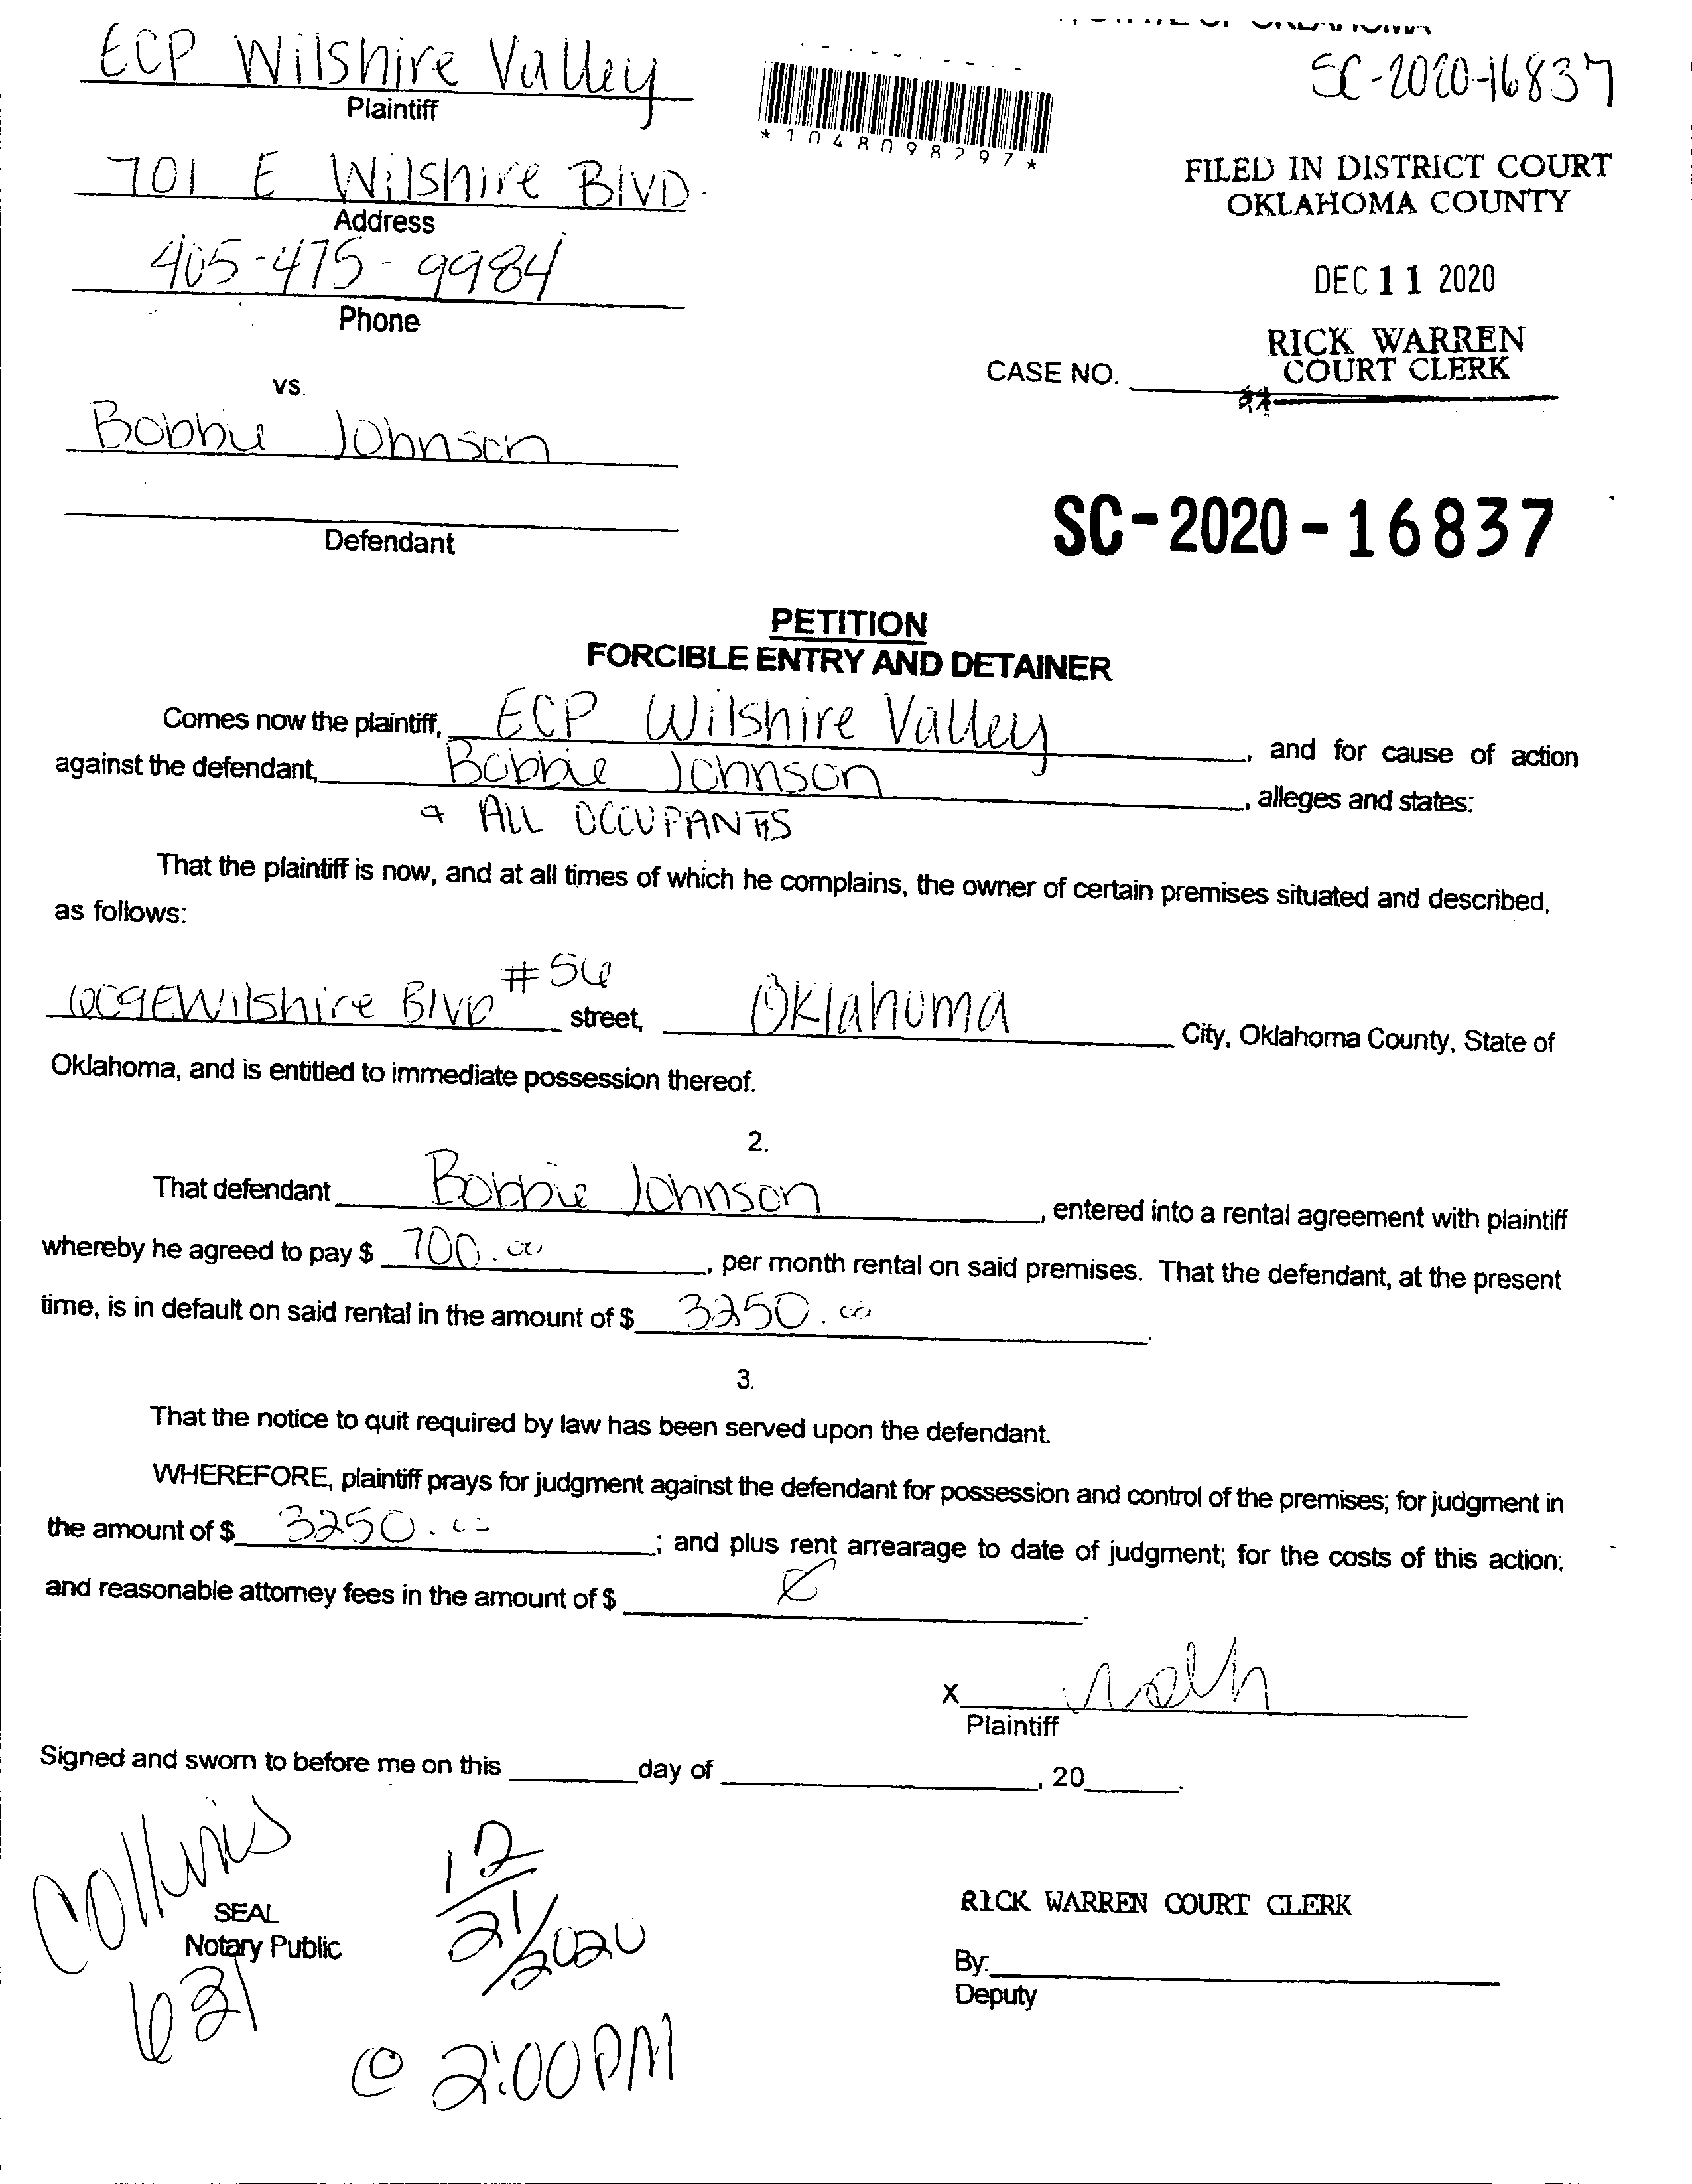 ECP Wilshire Valley
Plaintiff
SC-2020-16837
*1048098297*
701 E Wilshire BLVD.
Address
FILED IN DISTRICT COURT
OKLAHOMA COUNTY
405-475-9984
Phone
DEC 11 2020
RICK WARREN
COURT CLERK
CASE NO.
vs.
Bobbie Johnson
Defendant
SC-2020-16837
PETITION
FORCIBLE ENTRY AND DETAINER
Comes now the plaintiff, ECP Wilshire Valley, and for cause of action
against the defendant, Bobbie Johnson, alleges and states:
& ALL OCCUPANTS
That the plaintiff is now, and at all times of which he complains, the owner of certain premises situated and described,
as follows:
Wilshire Blvd #56 street, Oklahoma City, Oklahoma County, State of
Oklahoma, and is entitled to immediate possession thereof.
2.
That defendant Bobbie Johnson, entered into a rental agreement with plaintiff
whereby he agreed to pay $ 700.00, per month rental on said premises. That the defendant, at the present
time, is in default on said rental in the amount of $ 3250.00.
3.
That the notice to quit required by law has been served upon the defendant.
WHEREFORE, plaintiff prays for judgment against the defendant for possession and control of the premises; for judgment in
the amount of $ 3250.00; and plus rent arrearage to date of judgment; for the costs of this action;
and reasonable attorney fees in the amount of $ Ø.
X
Plaintiff
Signed and sworn to before me on this day of , 20 .
Collins
SEAL
Notary Public
631
12/21/2020
@ 2:00PM
RICK WARREN COURT CLERK
By:
Deputy